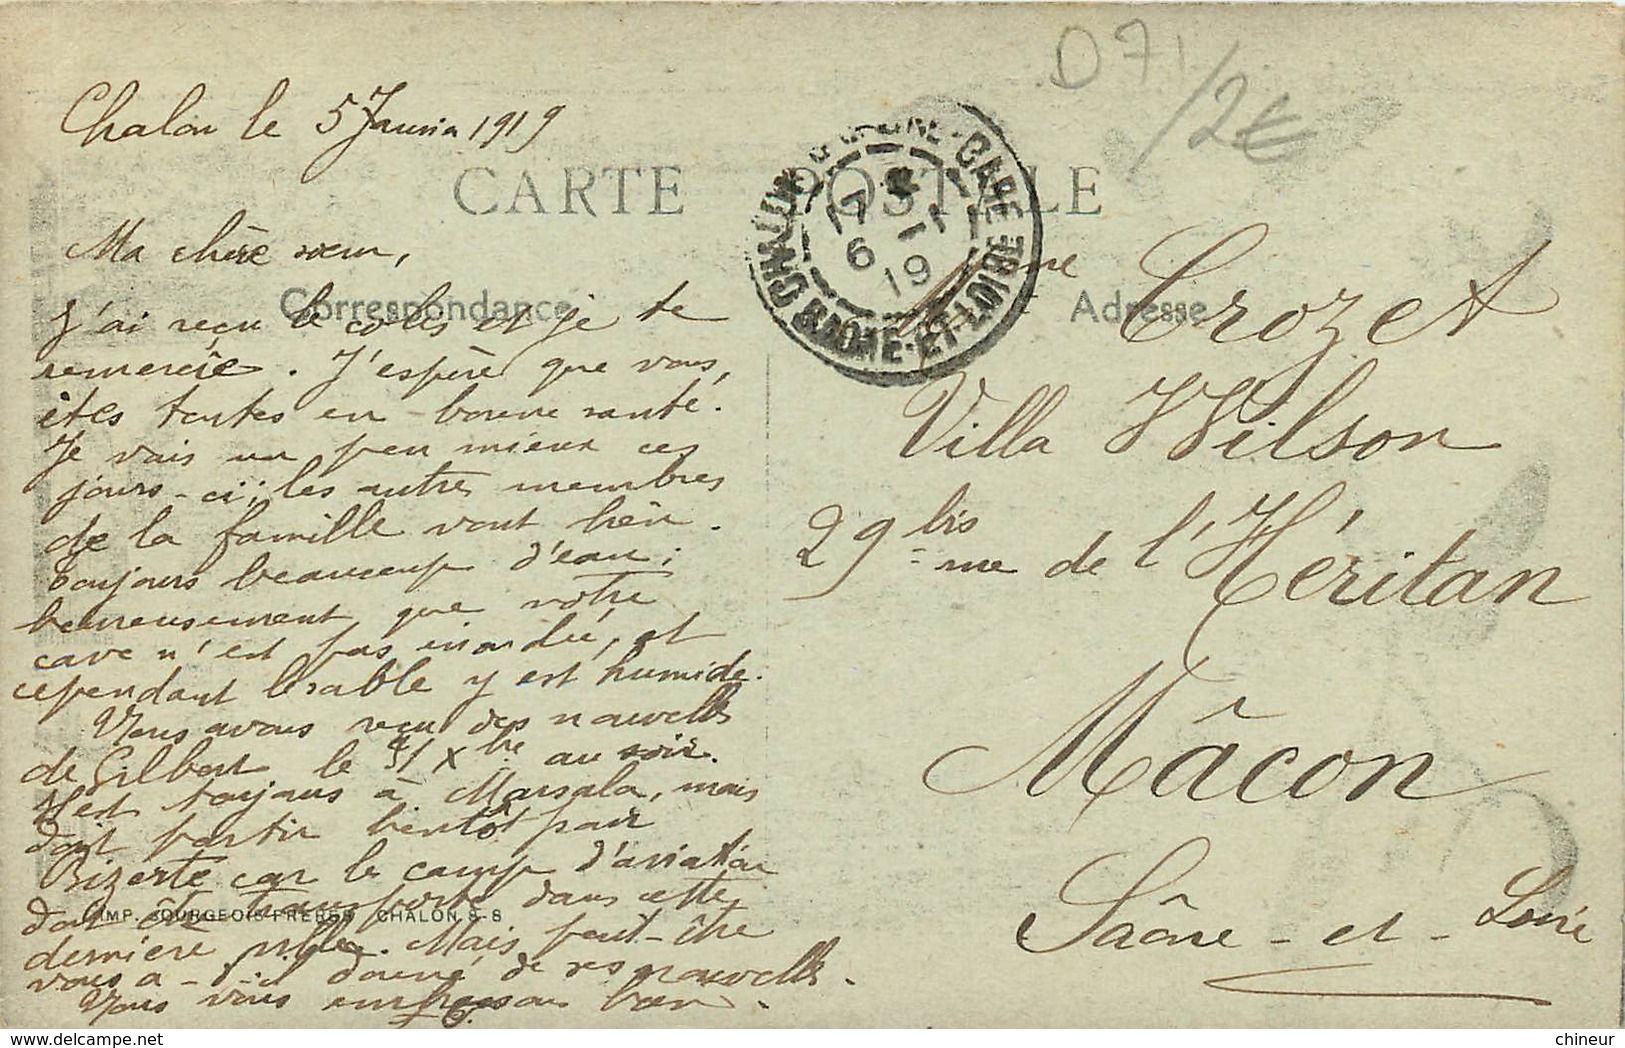 D71/2€
Chalon le 5 Janvier 1919
CARTE POSTALE
Ma chère sœur,
Correspondance
Adresse
J'ai reçu le colis et je te
remercie. J'espère que vous,
êtes toutes en bonne santé.
Je vais un peu mieux ces
jours-ci; les autres membres
de la famille vont bien.
Toujours beaucoup d'eau;
heureusement que votre
cave n'est pas inondée, et
cependant le sable y est humide.
Nous avons reçu des nouvelles
de Gilbert le 31 Xbre au soir.
Il est toujours à Marsala, mais
doit partir bientôt pour
Bizerte car le camp d'aviation
doit être transporté dans cette
dernière ville. Mais peut-être
vous a-t-il donné de ses nouvelles.
Nous vous embrassons bien.
IMP. BOURGEOIS FRÈRES CHALON S-S
CHALON-S-SAONE-GARE
SAONE-ET-LOIRE
17
6 - 1
19
Mme Crozet
Villa Wilson
29 bis rue de l'Héritan
Mâcon
Saône-et-Loire
delcampe.net
chineur